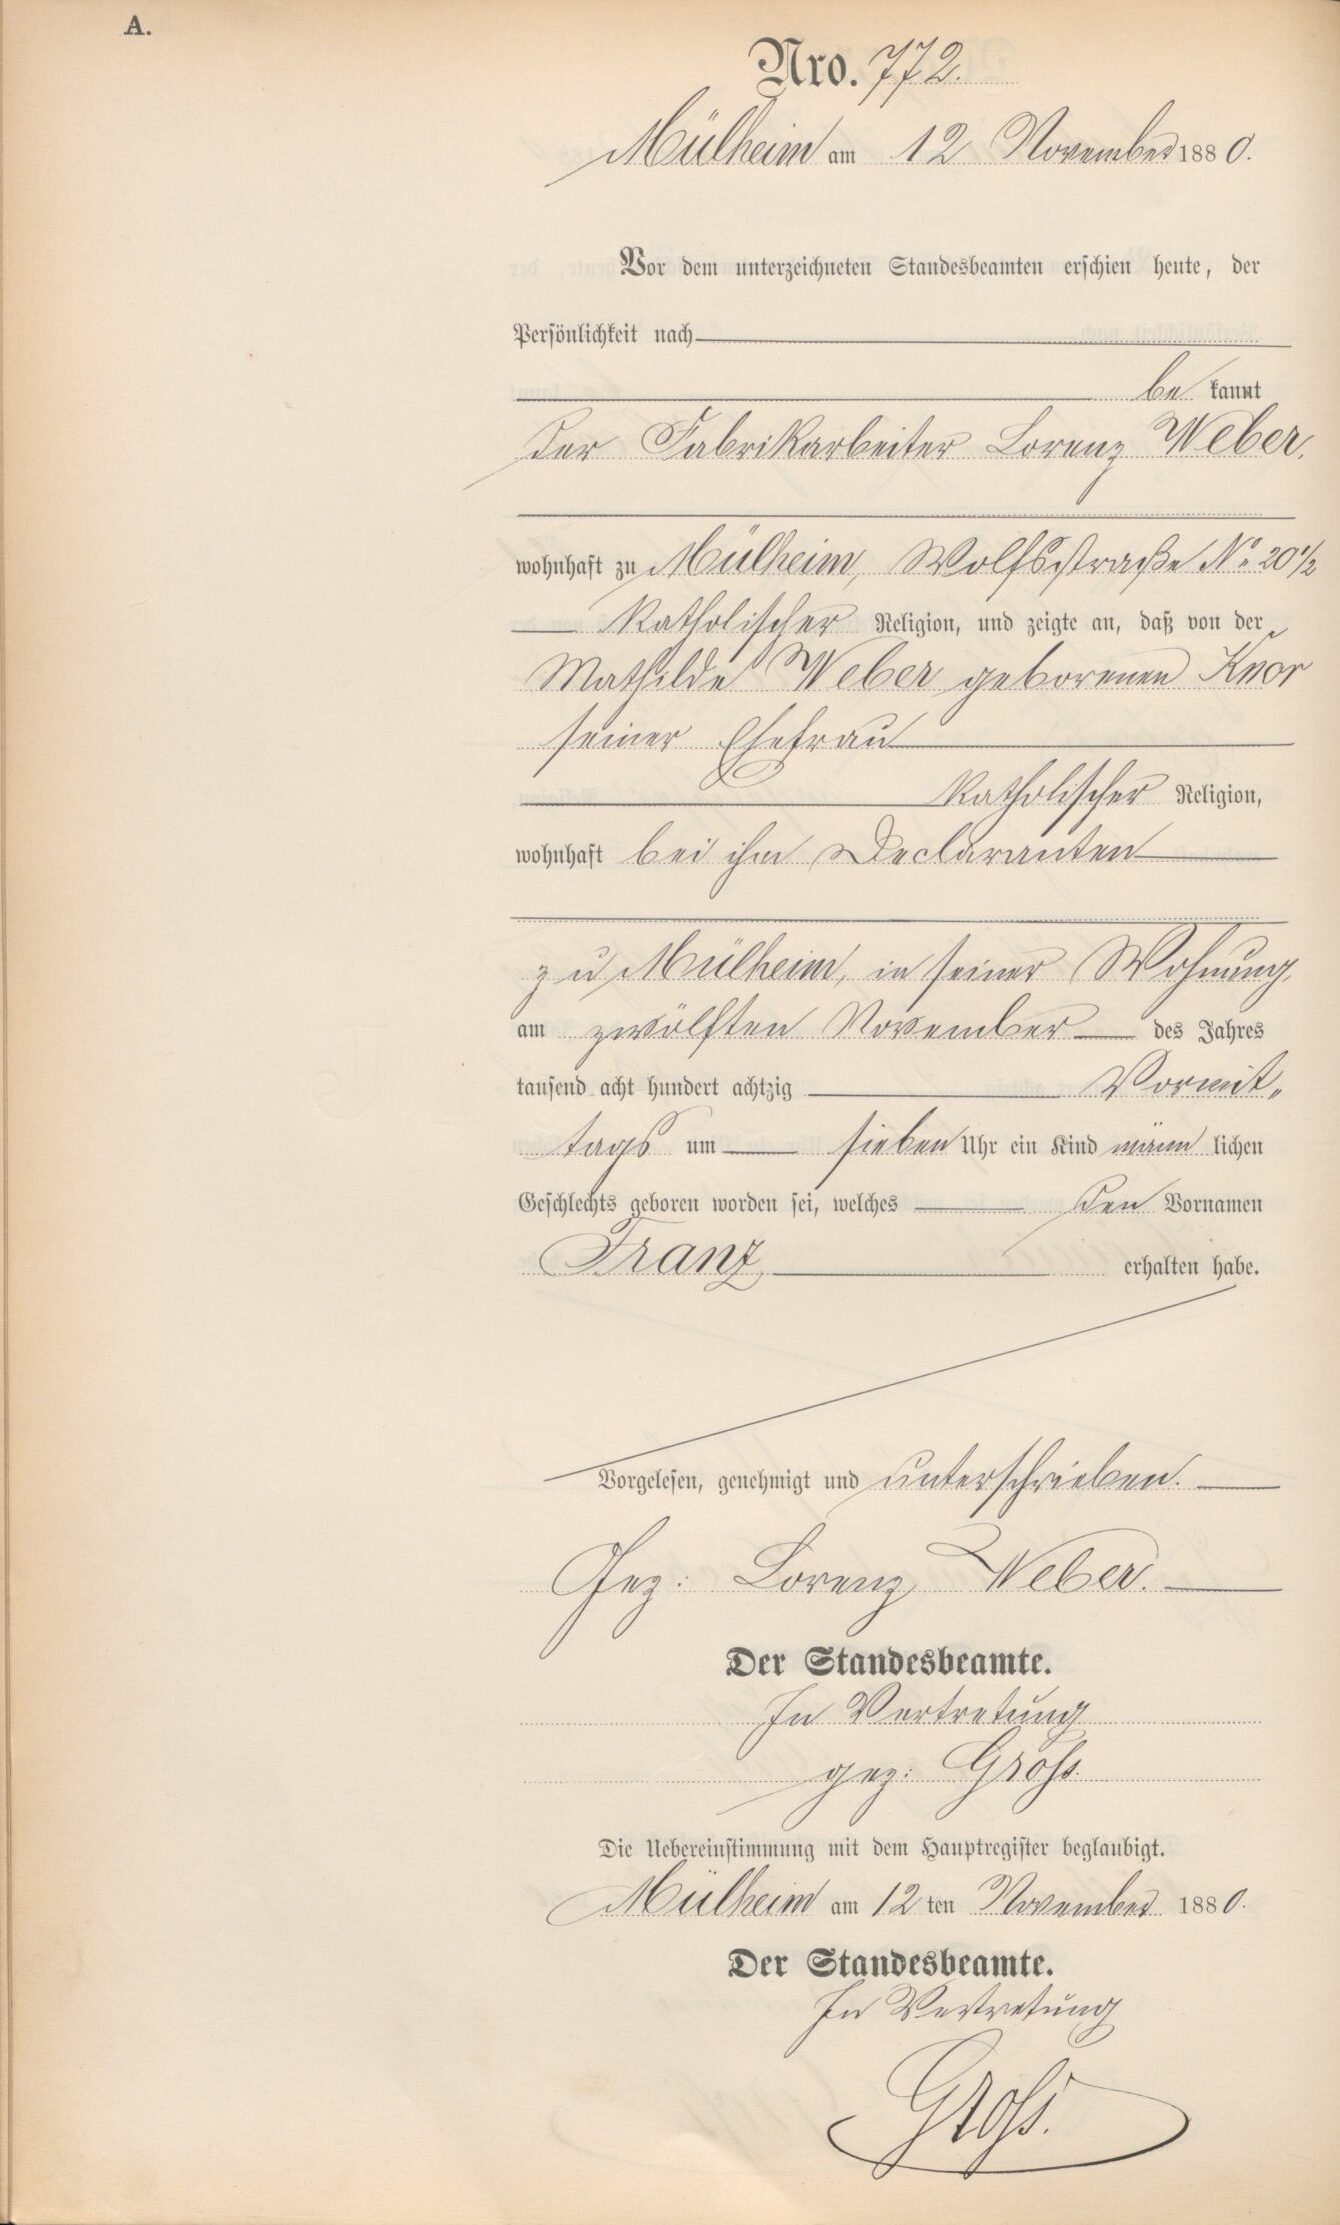 A.
Nro. 772.
Mülheim am 12 November 1880.
Vor dem unterzeichneten Standesbeamten erschien heute, der
Persönlichkeit nach
be kannt
der Fabrikarbeiter Lorenz Weber,
wohnhaft zu Mülheim, Wolfsstraße No 20 1/2
katholischer Religion, und zeigte an, daß von der
Mathilde Weber geborenen Knor
seiner Ehefrau
katholischer Religion,
wohnhaft bei ihm Declaranten
zu Mülheim, in seiner Wohnung,
am zwölften November des Jahres
tausend acht hundert achtzig Vormit„
tags um sieben Uhr ein Kind männ lichen
Geschlechts geboren worden sei, welches den Vornamen
Franz erhalten habe.
Vorgelesen, genehmigt und unterschrieben.
Gez: Lorenz Weber.
Der Standesbeamte.
In Vertretung
gez: Groß.
Die Uebereinstimmung mit dem Hauptregister beglaubigt.
Mülheim am 12 ten November 1880.
Der Standesbeamte.
In Vertretung
Groß.